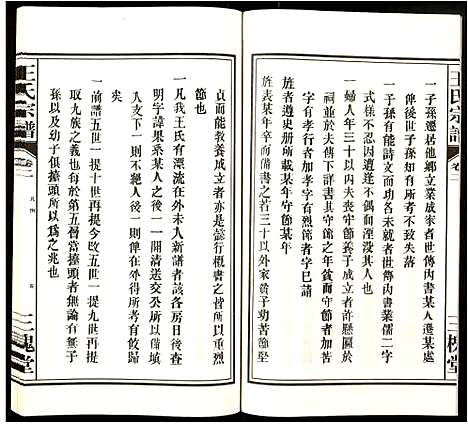 王氏宗譜
卷二
三槐堂
一子孫遷居他鄉立業成家者世傳內書某人遷某處
俾後世子孫知有所考不致失落
一子孫有能詩文而功名未就者世傳內書業儒二字
式樣不忍因功名偶而湮沒其人也
一婦人年三十以內夫喪守節養子成立者許懸匾於
祠並於夫傳下詳書其守節之年貧而守節者加
字有孝行者加孝字有烈者書字已請
旌者遵史册所載某年守節某年
旌表某年卒而備書之若三十以外家貧子幼苦節堅
貞而能教養成立者亦是懿行概書之皆所以重
節也
一凡我王氏有漂流在外未入新譜者該各房日後查
明字諱果系某人之後一一開清送交公所以備填
入支下則不絕人後一則俾在外得所考有餃歸
矣
一前譜五世一提十世再提今改五世一提九世再提
取九族之義也每於第五層當擡頭者無論有無子
孫以及幼子俱擡頭所以為之兆也
王氏宗譜
卷二
凡例
三槐堂